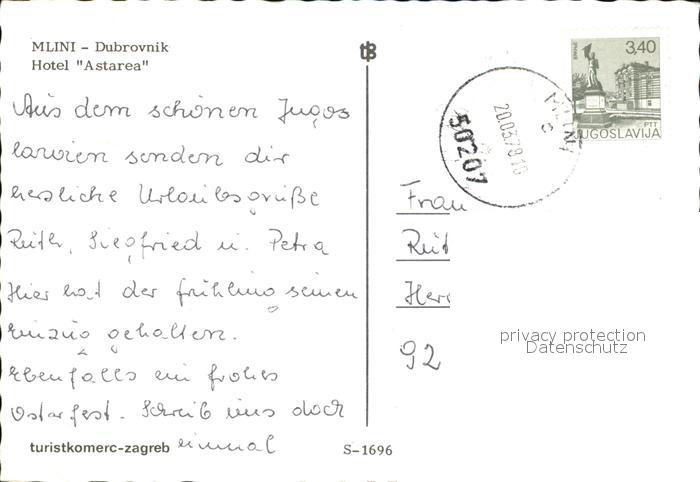 MLINI - Dubrovnik
Hotel "Astarea"
Aus dem schönen Jugos
lawien senden dir
herzliche Urlaubsgrüße
Ruth, Siegfried u. Petra
Hier hat der frühling seinen
einzug gehalten.
Ebenfalls ein frohes
Osterfest. Schreib uns doch
einmal
turistkomerc-zagreb
S-1696
tB
3,40
PTT
JUGOSLAVIJA
MLINI
c
20.03.78 10
50207
Frau
92
privacy protection
Datenschutz